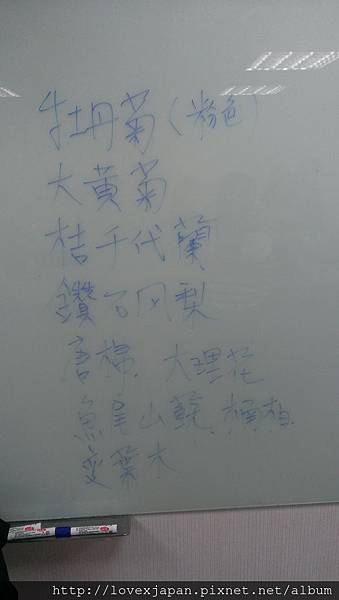 牡丹菊(粉色)
大黃菊
桔千代蘭
鑽石鳳梨
唐棉. 大理花
魚尾山蘇.
變葉木
http://lovexjapan.pixnet.net/album